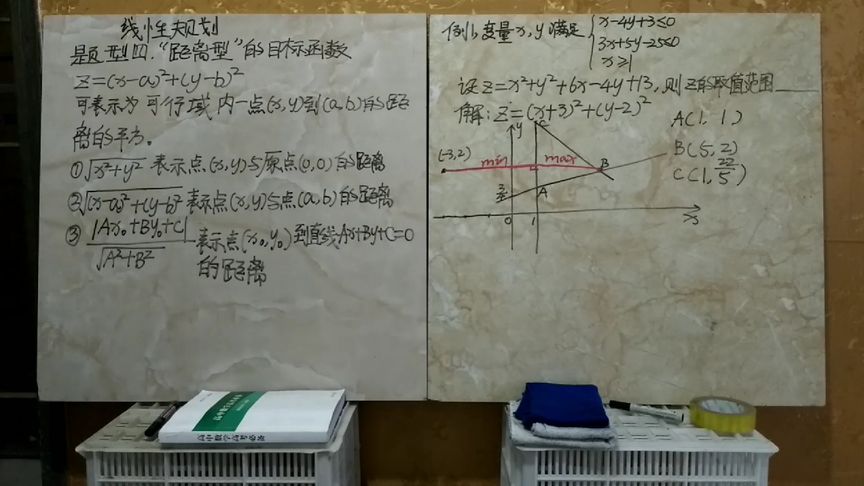 线性规划
题型四."距离型"的目标函数
Z=(x-a)²+(y-b)²
可表示为可行域内一点(x,y)到(a,b)的距
离的平方。
①√x²+y² 表示点(x,y)与原点(0,0)的距离
②√(x-a)²+(y-b)² 表示点(x,y)与点(a,b)的距离
③ |Ax₀+By₀+C|/√A²+B² 表示点(x₀,y₀)到直线Ax+By+C=0
的距离
例1,变量x,y满足{x-4y+3≤0
3x+5y-25≤0
x≥1
记Z=x²+y²+6x-4y+13,则Z的取值范围____
解:Z=(x+3)²+(y-2)²
A(1,1)
B(5,2)
C(1,22/5)
(-3,2)
min
max
y
C
B
A
3/4
0
1
x
高中数学高考必备